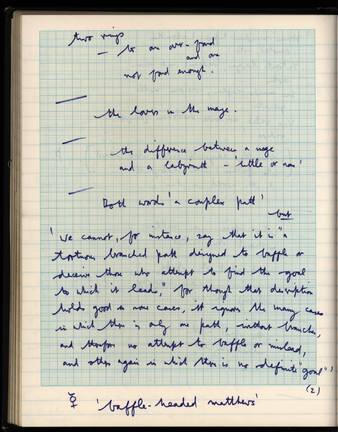 two rings
— to an over-fond
and one
not fond enough.
the lovers in the maze.
the difference between a maze
and a labyrinth - 'little or non'
Both words 'a complex path'
but
'We cannot, for instance, say that it is "a
tortuous branched path designed to baffle or
deceive those who attempt to find the goal
to which it leads," for though that description
holds good in some cases, it ignores the many cases
in which there is only one path, without branches,
and therefore no attempt to baffle or mislead,
and others again in which there is no definite "goal"'
(2)
☿ 'baffle-headed matthews'